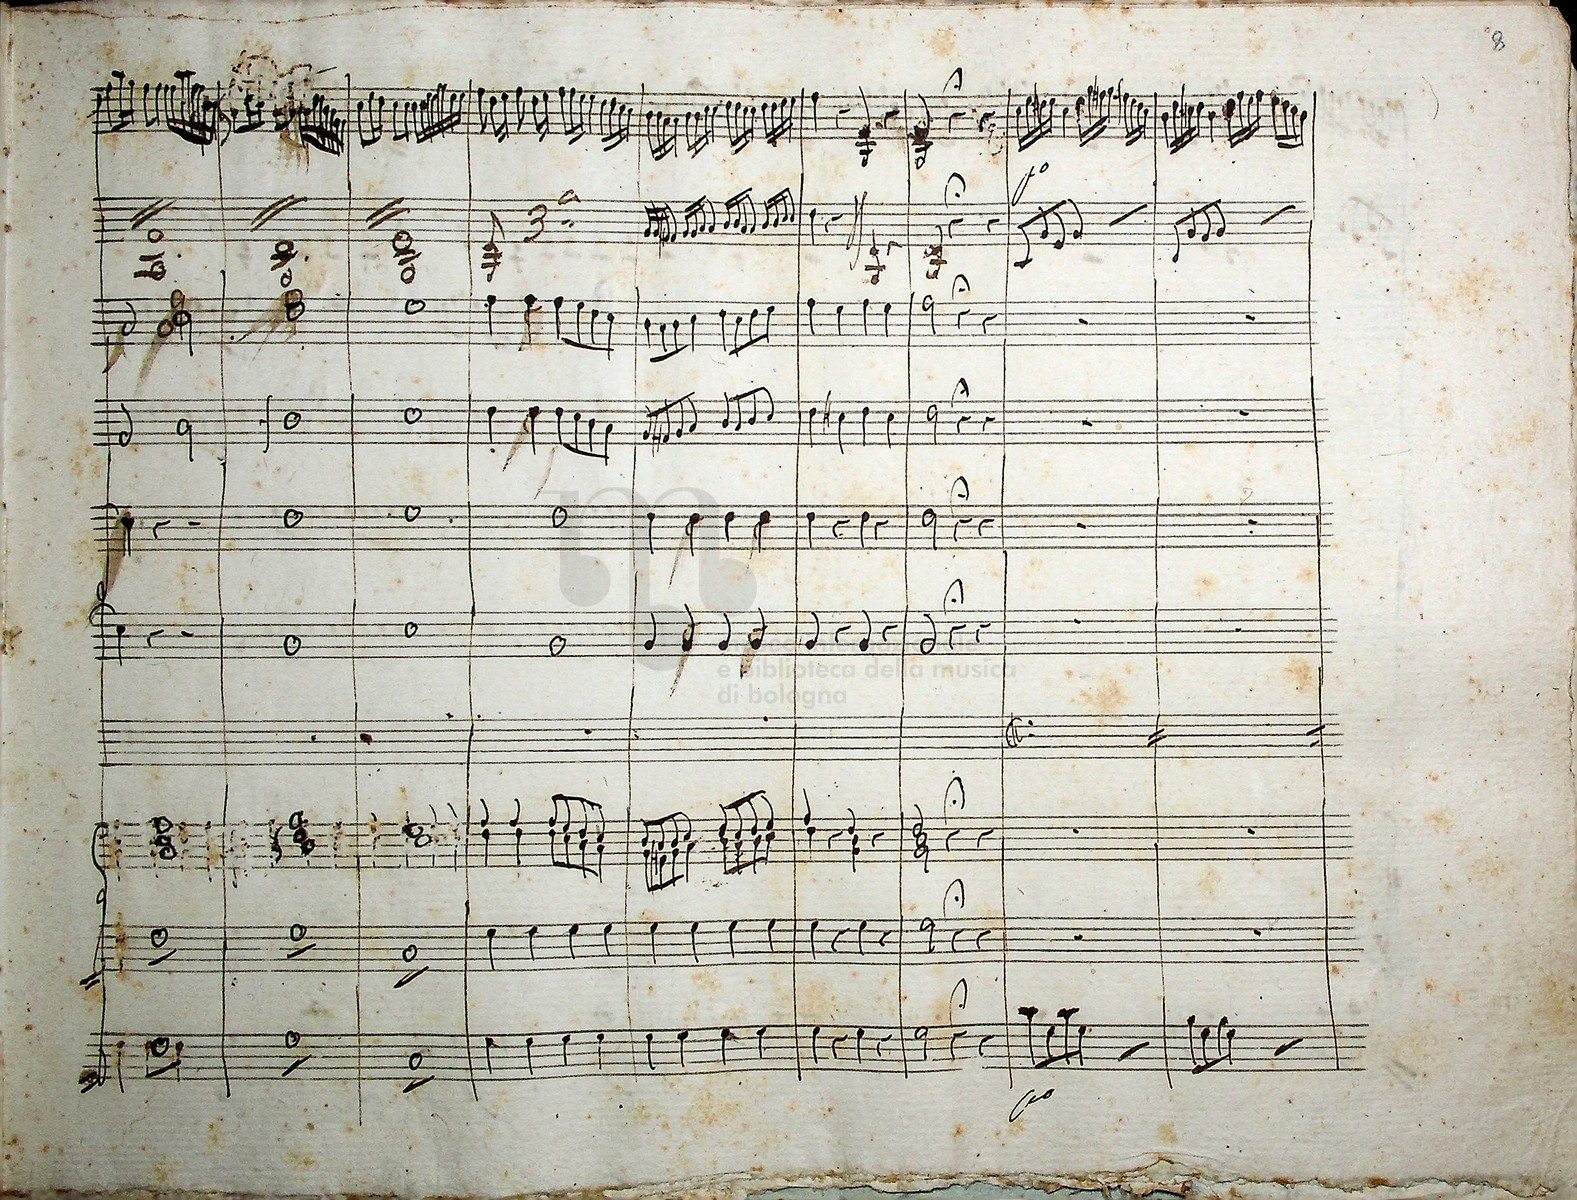 8
po
3ª
e biblioteca della musica
di bologna
po